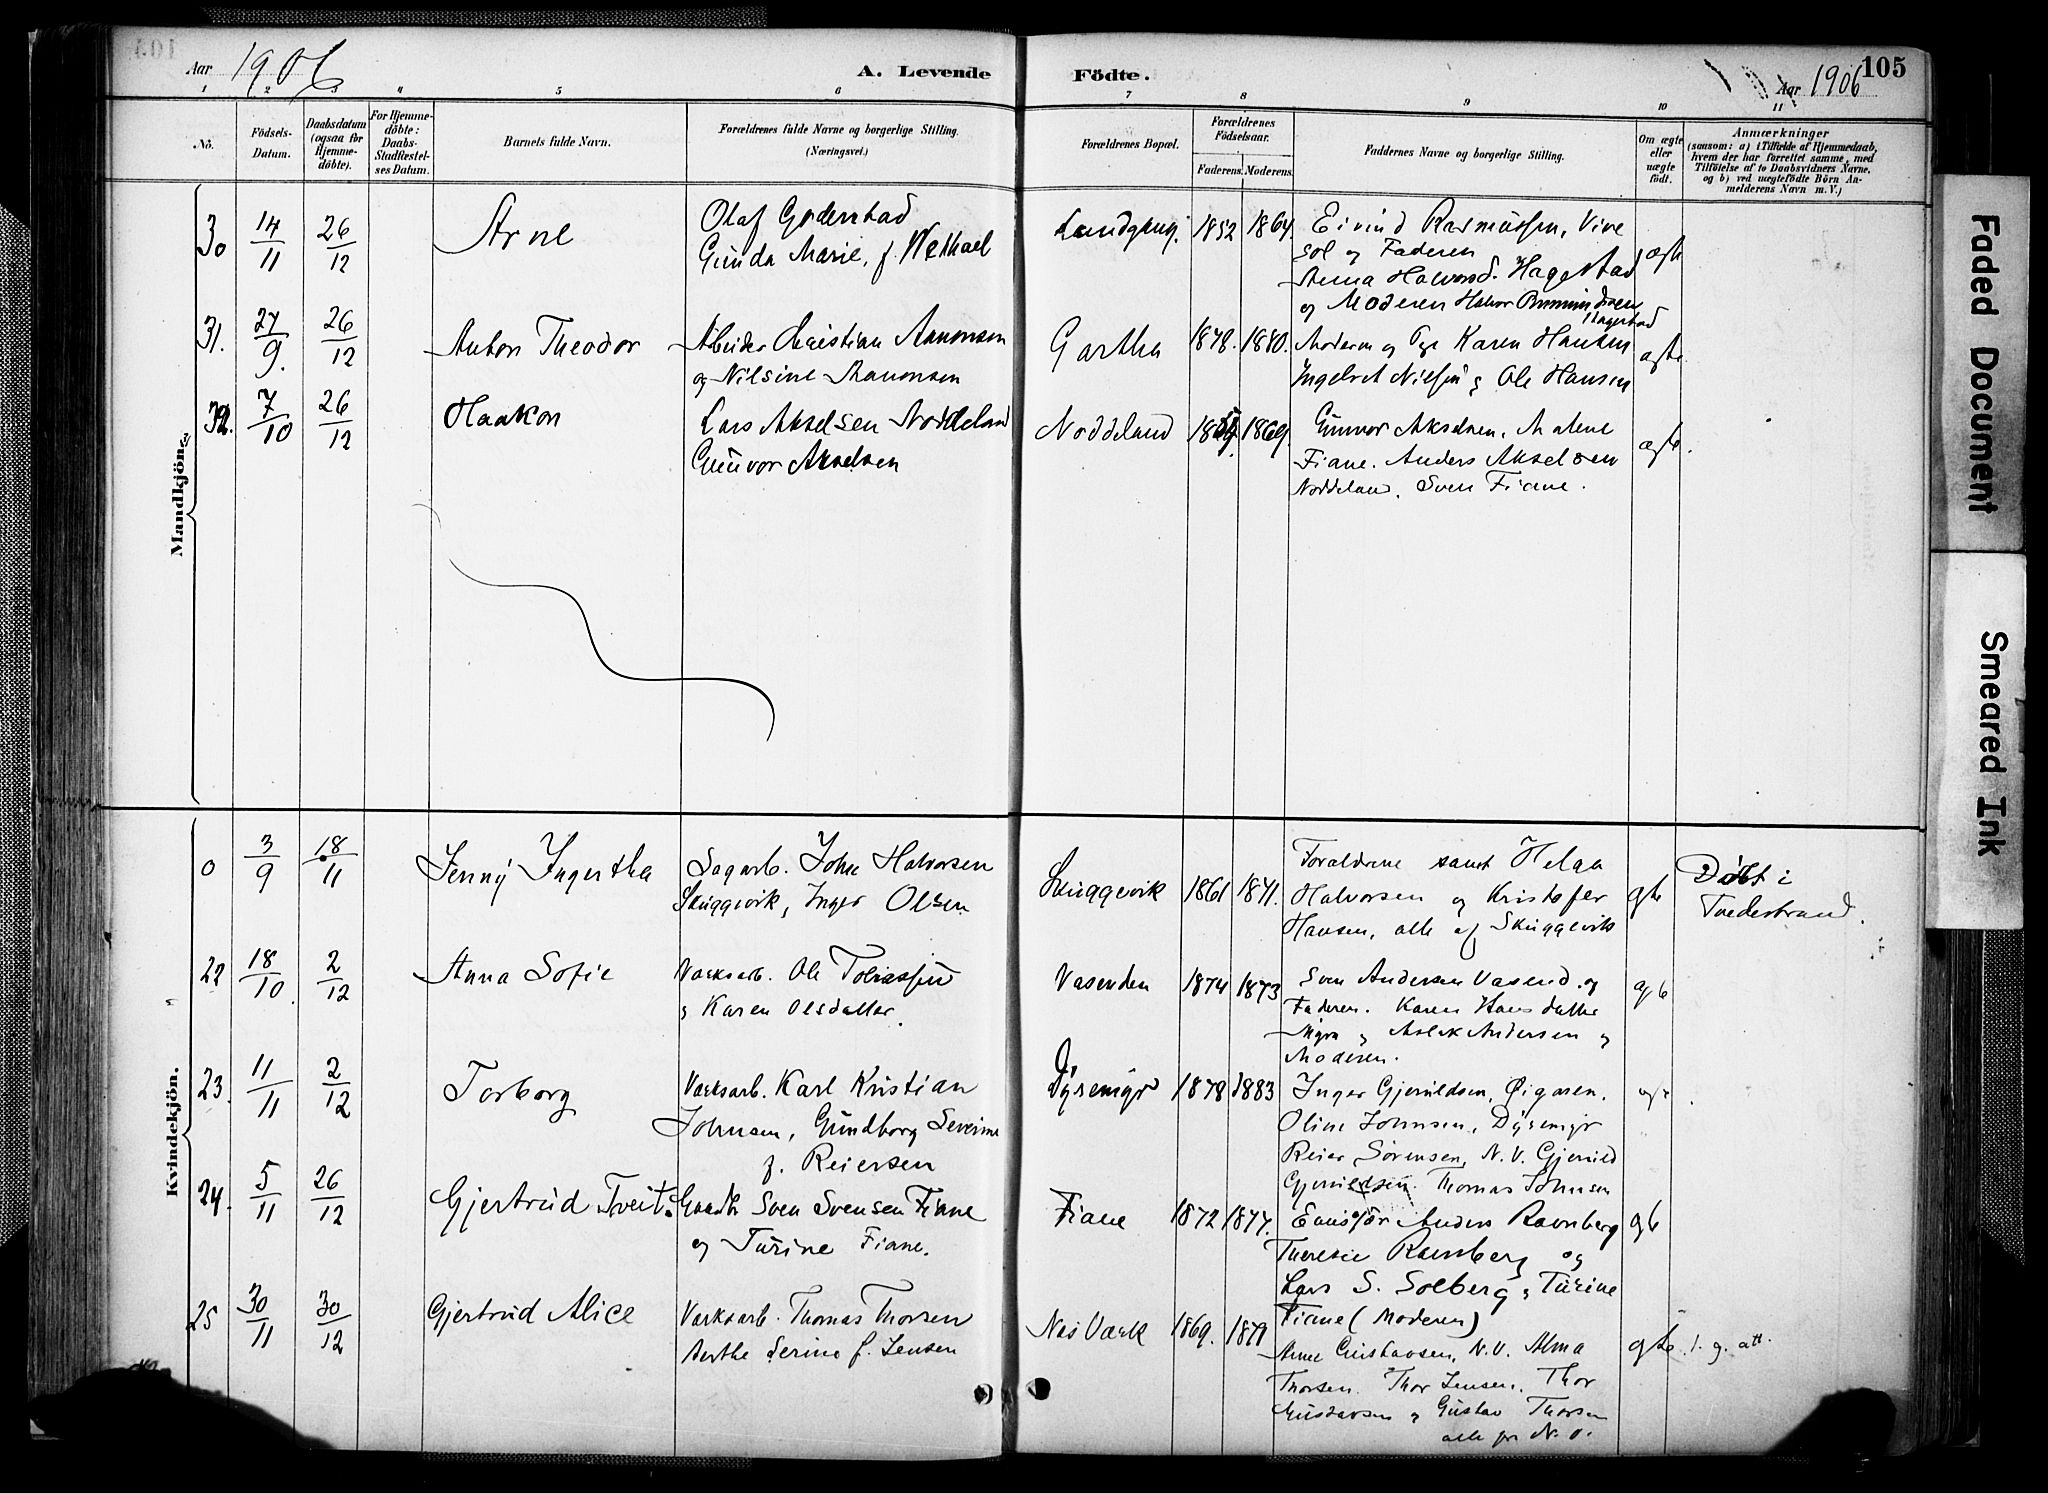 Aar 1906
A. Levende Födte.
Aar 1906
105
1 2 3 4 5 6 7 8 9 10 11
No.
Födsels-Datum.
Daabsdatum (ogsaa for Hjemme-döbte).
For Hjemme-döbte: Daabs-Stadfæstel-ses Datum.
Barnets fulde Navn.
Forældrenes fulde Navne og borgerlige Stilling. (Næringsvei.)
Forældrenes Bopæl.
Forældrenes Födselsaar.
Faderens. Moderens.
Faddernes Navne og borgerlige Stilling.
Om ægte eller uægte födt.
Anmærkninger
(saasom: a) i Tilfælde af Hjemmedaab, hvem der har forrettet samme, med Tilföielse af to Daabsvidners Navne, og b) ved uægtefödte Börn An-melderens Navn m. V.)
Mandkjön.
30 14/11 26/12 Arne
Olaf Godenstad
Gunda Marie, f.
1852 1864.
Eivind Rasmussen, Vive
sol og Faderen
Anna Halvorsd. Hagestad
og Moderen Halvor
Hagestad
ægte
31. 27/9. 26/12 Anton Theodor
Arbeider Christian Aanonsen
og Nilsine Aanonsen
Gartha 1878. 1880.
Moderen og Pige Karen Hansen
Nilsen og Ole Hansen
ægte.
32. 7/10 26/12 Haakon
Lars Akselsen Noddeland
Gunvor Akselsen
Noddeland 1869.
Gunvor Akselsen, Malene
Fiane. Anders Akselsen
Noddeland, Sven Fiane.
ægte.
Kvindekjön.
0 3/9 18/11 Jenny Ingertha
Sagarb. John Halvorsen
Skuggevik, Inger Olsen.
Skuggevik 1861 1871.
Forældrene samt Helga
Halvorsen og Kristofer
Hansen, alle af Skuggevik
gte
Döbt i
Tvedestrand.
22 18/10. 2/12 Anna Sofie
Værksarb. Ole Tobiassen
og Karen Olsdatter.
Vasenden 1874 1873
Sven Andersen Vasend. og
Faderen. Karen Hansdatter
Myra og Aslak Andersen og
Moderen.
gte
23. 11/11 2/12 Torborg
Værksarb. Karl Kristian
Johnsen, Gundborg Severine
f. Reiersen
Dyremyr 1878 1883
Inger Gjeruldsen, Øigaren.
Oline Johnsen, Dyremyr
Reier Sörensen, N.V. Gjeruld
Gjeruldsen. Thomas Johnsen
24. 5/11 26/12 Gjertrud Tveit.
Gaardbr. Sven Svensen Fiane
og Turine Fiane.
Fiane 1872 1877.
Anders Ramberg
Theresie Ramberg og
Lars S. Solberg og Turine
Fiane (Moderen)
gte
25 30/11 30/12 Gjertrud Alice
Værksarb. Thomas Thorsen
Berthe Serine f. Jensen
Nes Værk 1869.
Anne Gustavsen, N.V. Alma
Thorsen. Thor Jensen. Thor
Gustavsen og Gustav Thorsen
alle fra N.V.
gte. l. g. att.
Faded Document
Smeared Ink